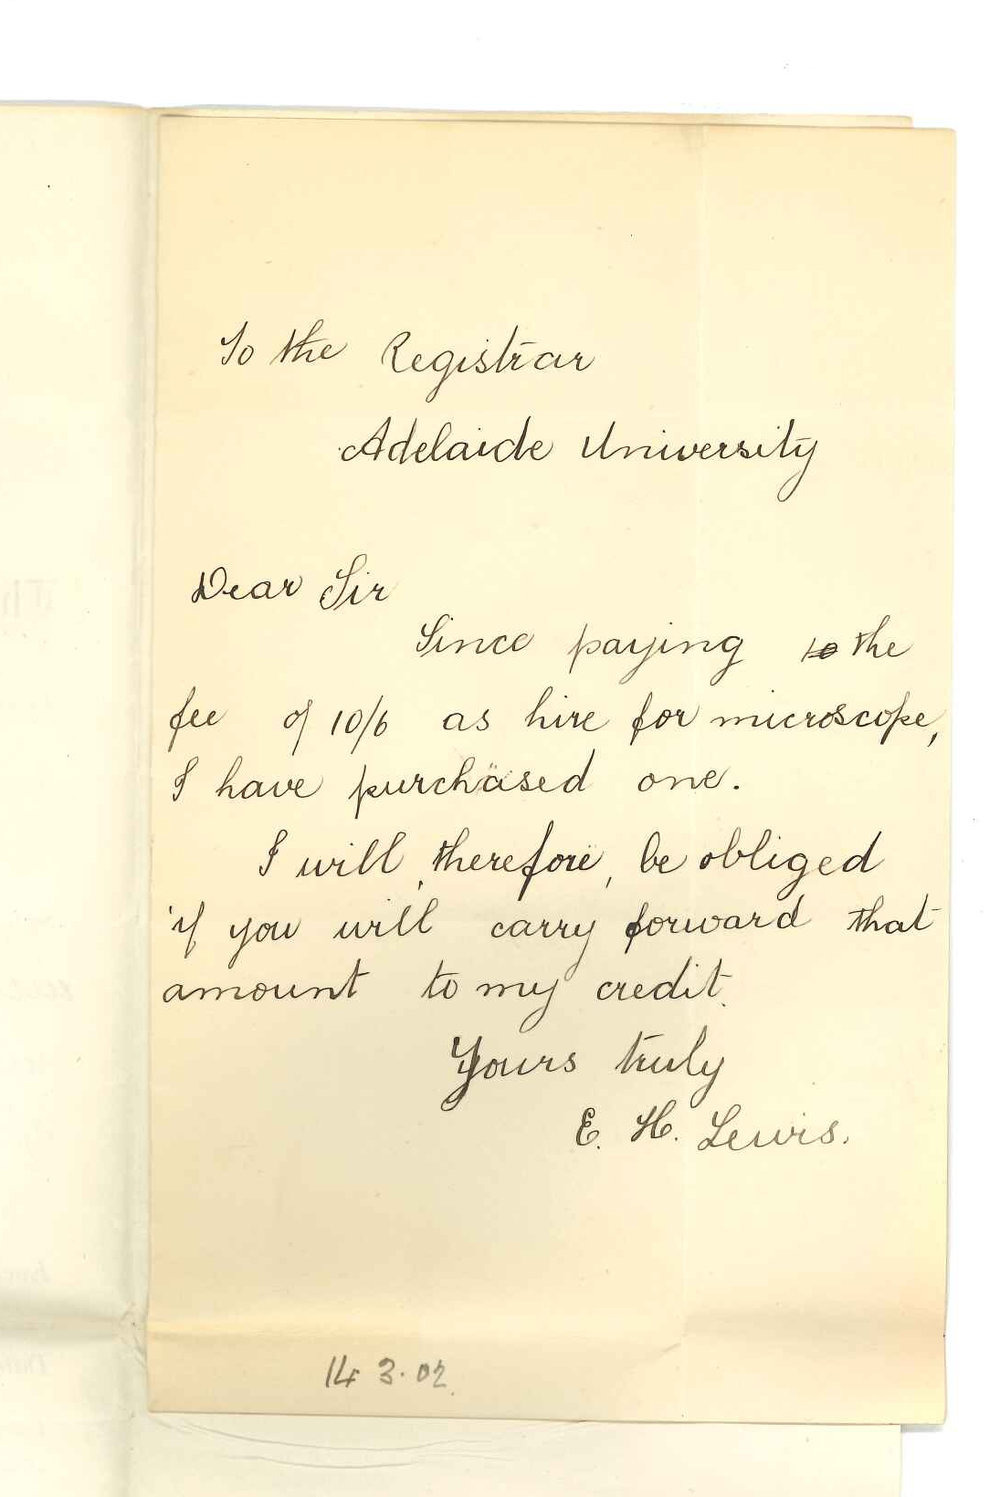 To the Registrar
Adelaide University
Dear Sir
Since paying the
fee of 10/6 as hire for microscope,
I have purchased one.
I will, therefore, be obliged
if you will carry forward that
amount to my credit.
Yours truly
E. H. Lewis.
14 3.02.